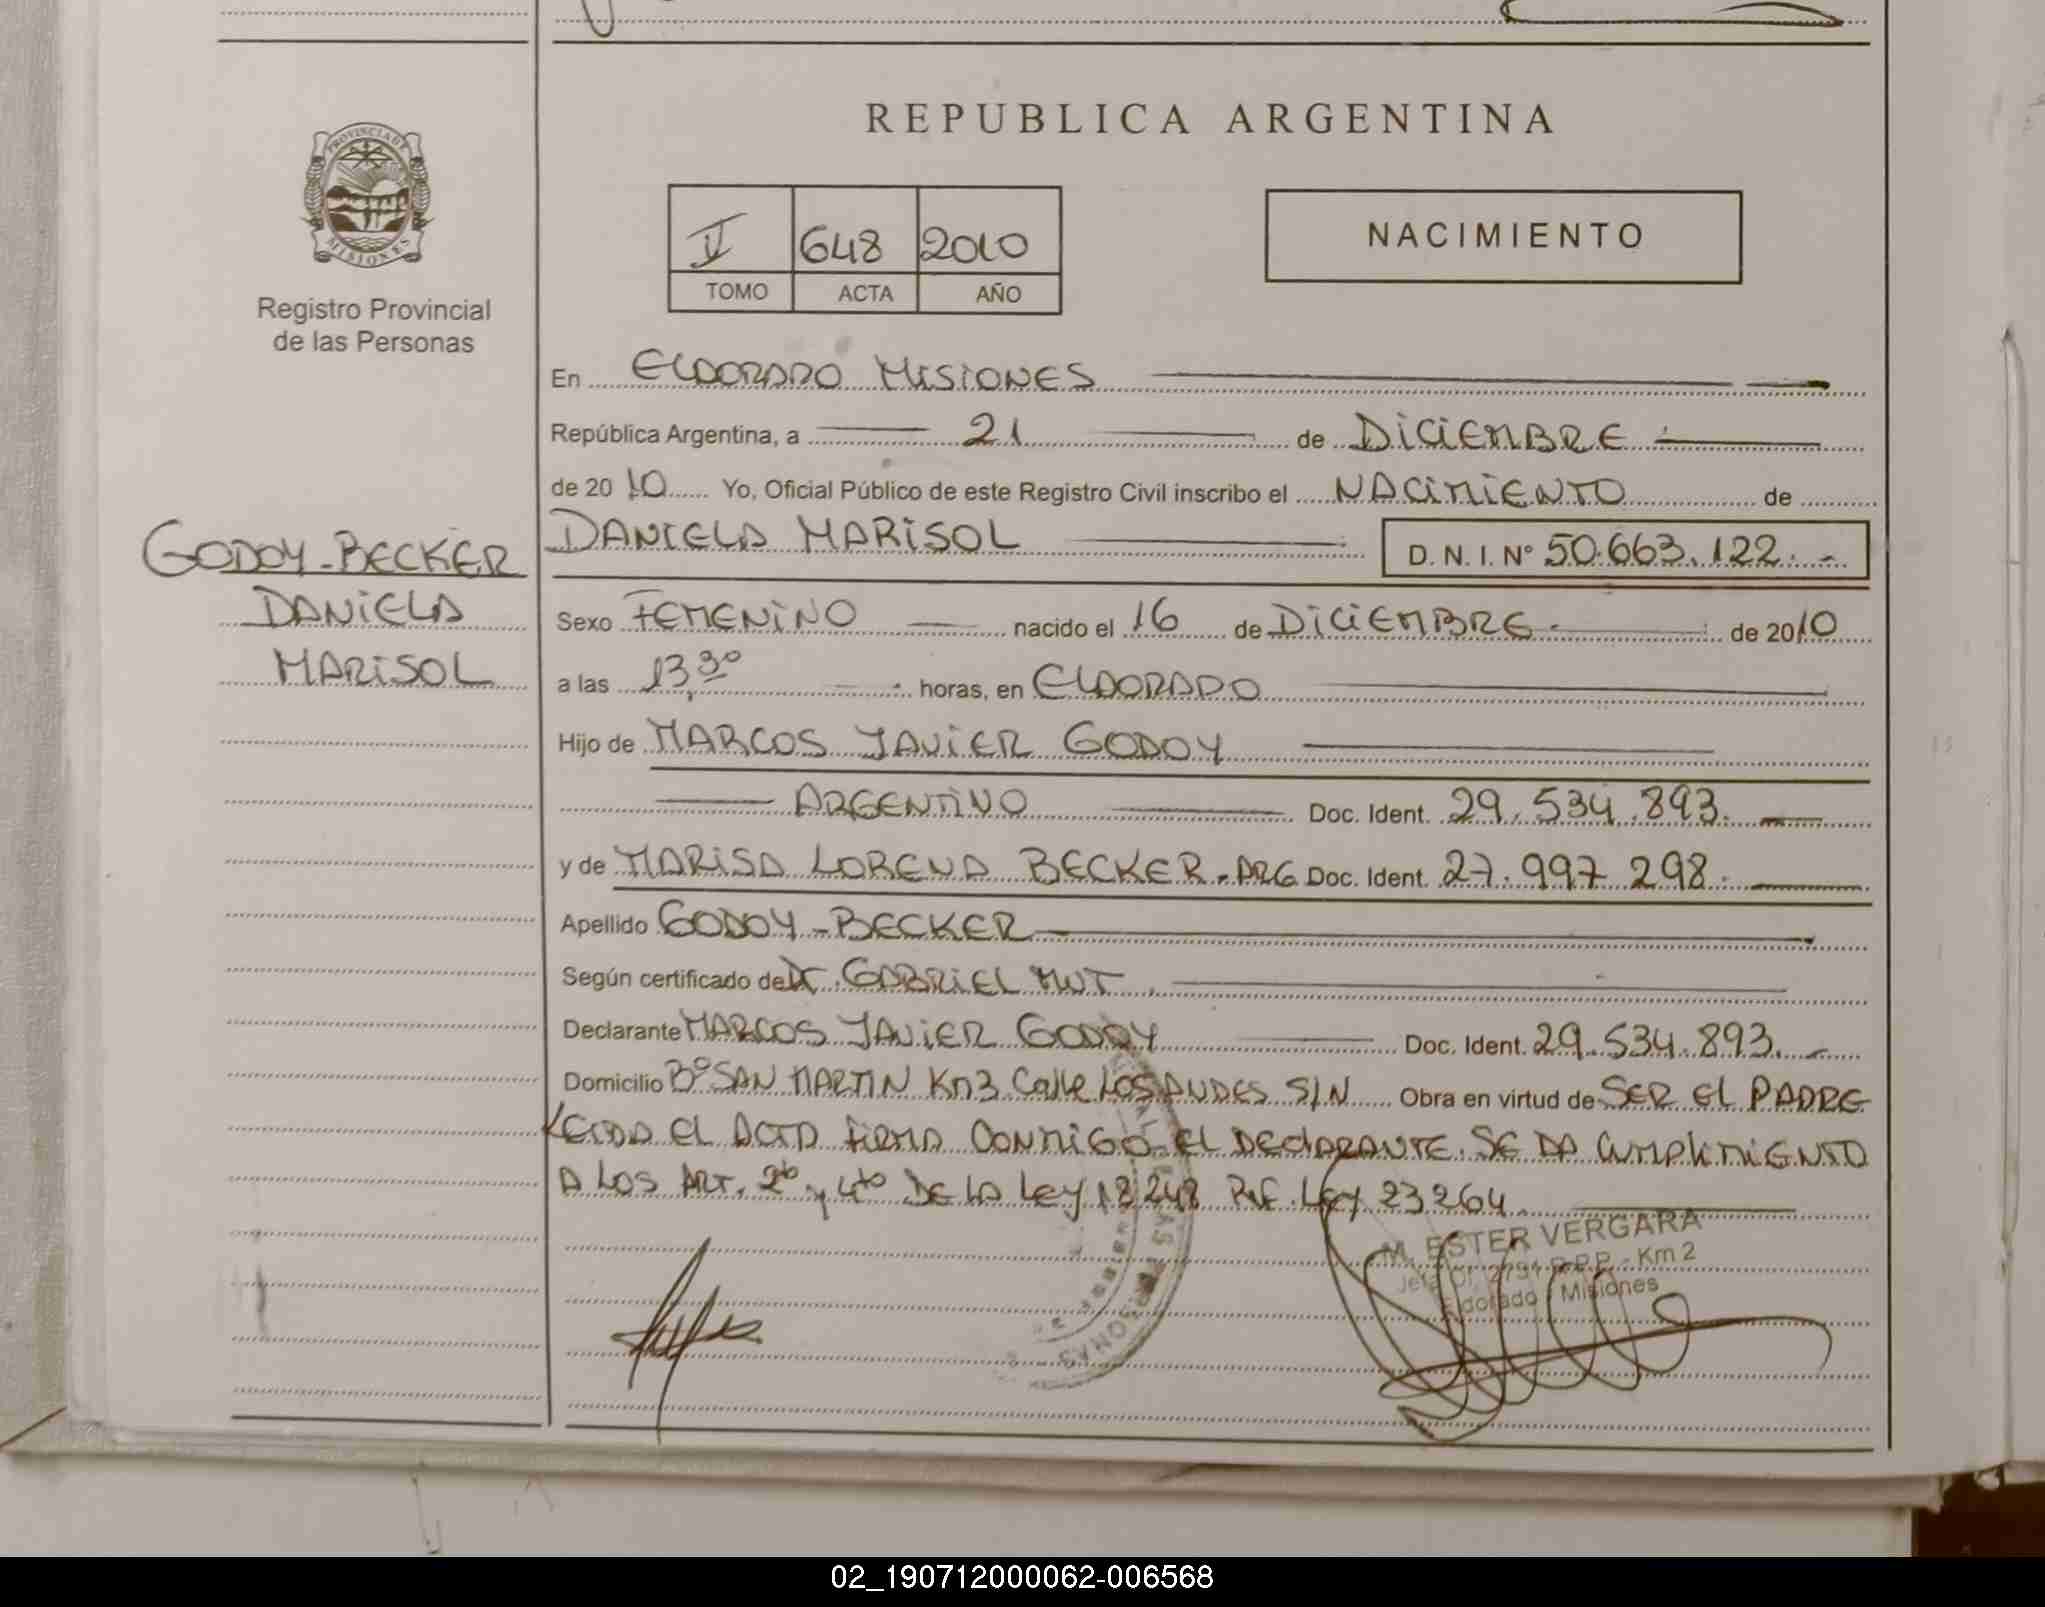 REPUBLICA ARGENTINA
PROVINCIA DE
MISIONES
Registro Provincial
de las Personas
648 2010
TOMO ACTA AÑO
NACIMIENTO
En ELDORADO MISIONES
República Argentina, a 21 de DICIEMBRE
de 2010 Yo, Oficial Público de este Registro Civil inscribo el NACIMIENTO de
DANIELA MARISOL D. N. I. N° 50.663.122.-
GODOY-BECKER
DANIELA
MARISOL
Sexo FEMENINO nacido el 16 de DICIEMBRE de 2010
a las 13,30 horas, en ELDORADO
Hijo de MARCOS JAVIER GODOY
ARGENTINO Doc. Ident. 29.534.893.
y de MARISA LORENA BECKER-ARG Doc. Ident. 27.997 298.
Apellido GODOY-BECKER
Según certificado de Dr. GABRIEL
Declarante MARCOS JAVIER GODOY Doc. Ident. 29.534.893.-
Domicilio B° SAN MARTIN Km3 Calle LOS ANDES S/N Obra en virtud de SER EL PADRE
LEIDA EL ACTA FIRMA CONMIGO EL DECLARANTE. SE DA CUMPLIMIENTO
A LOS ART. 2° y 4to DE LA LEY 18248 Ref. LEY 23264
M. ESTER VERGARA
Km 2
Eldorado Misiones
02_190712000062-006568